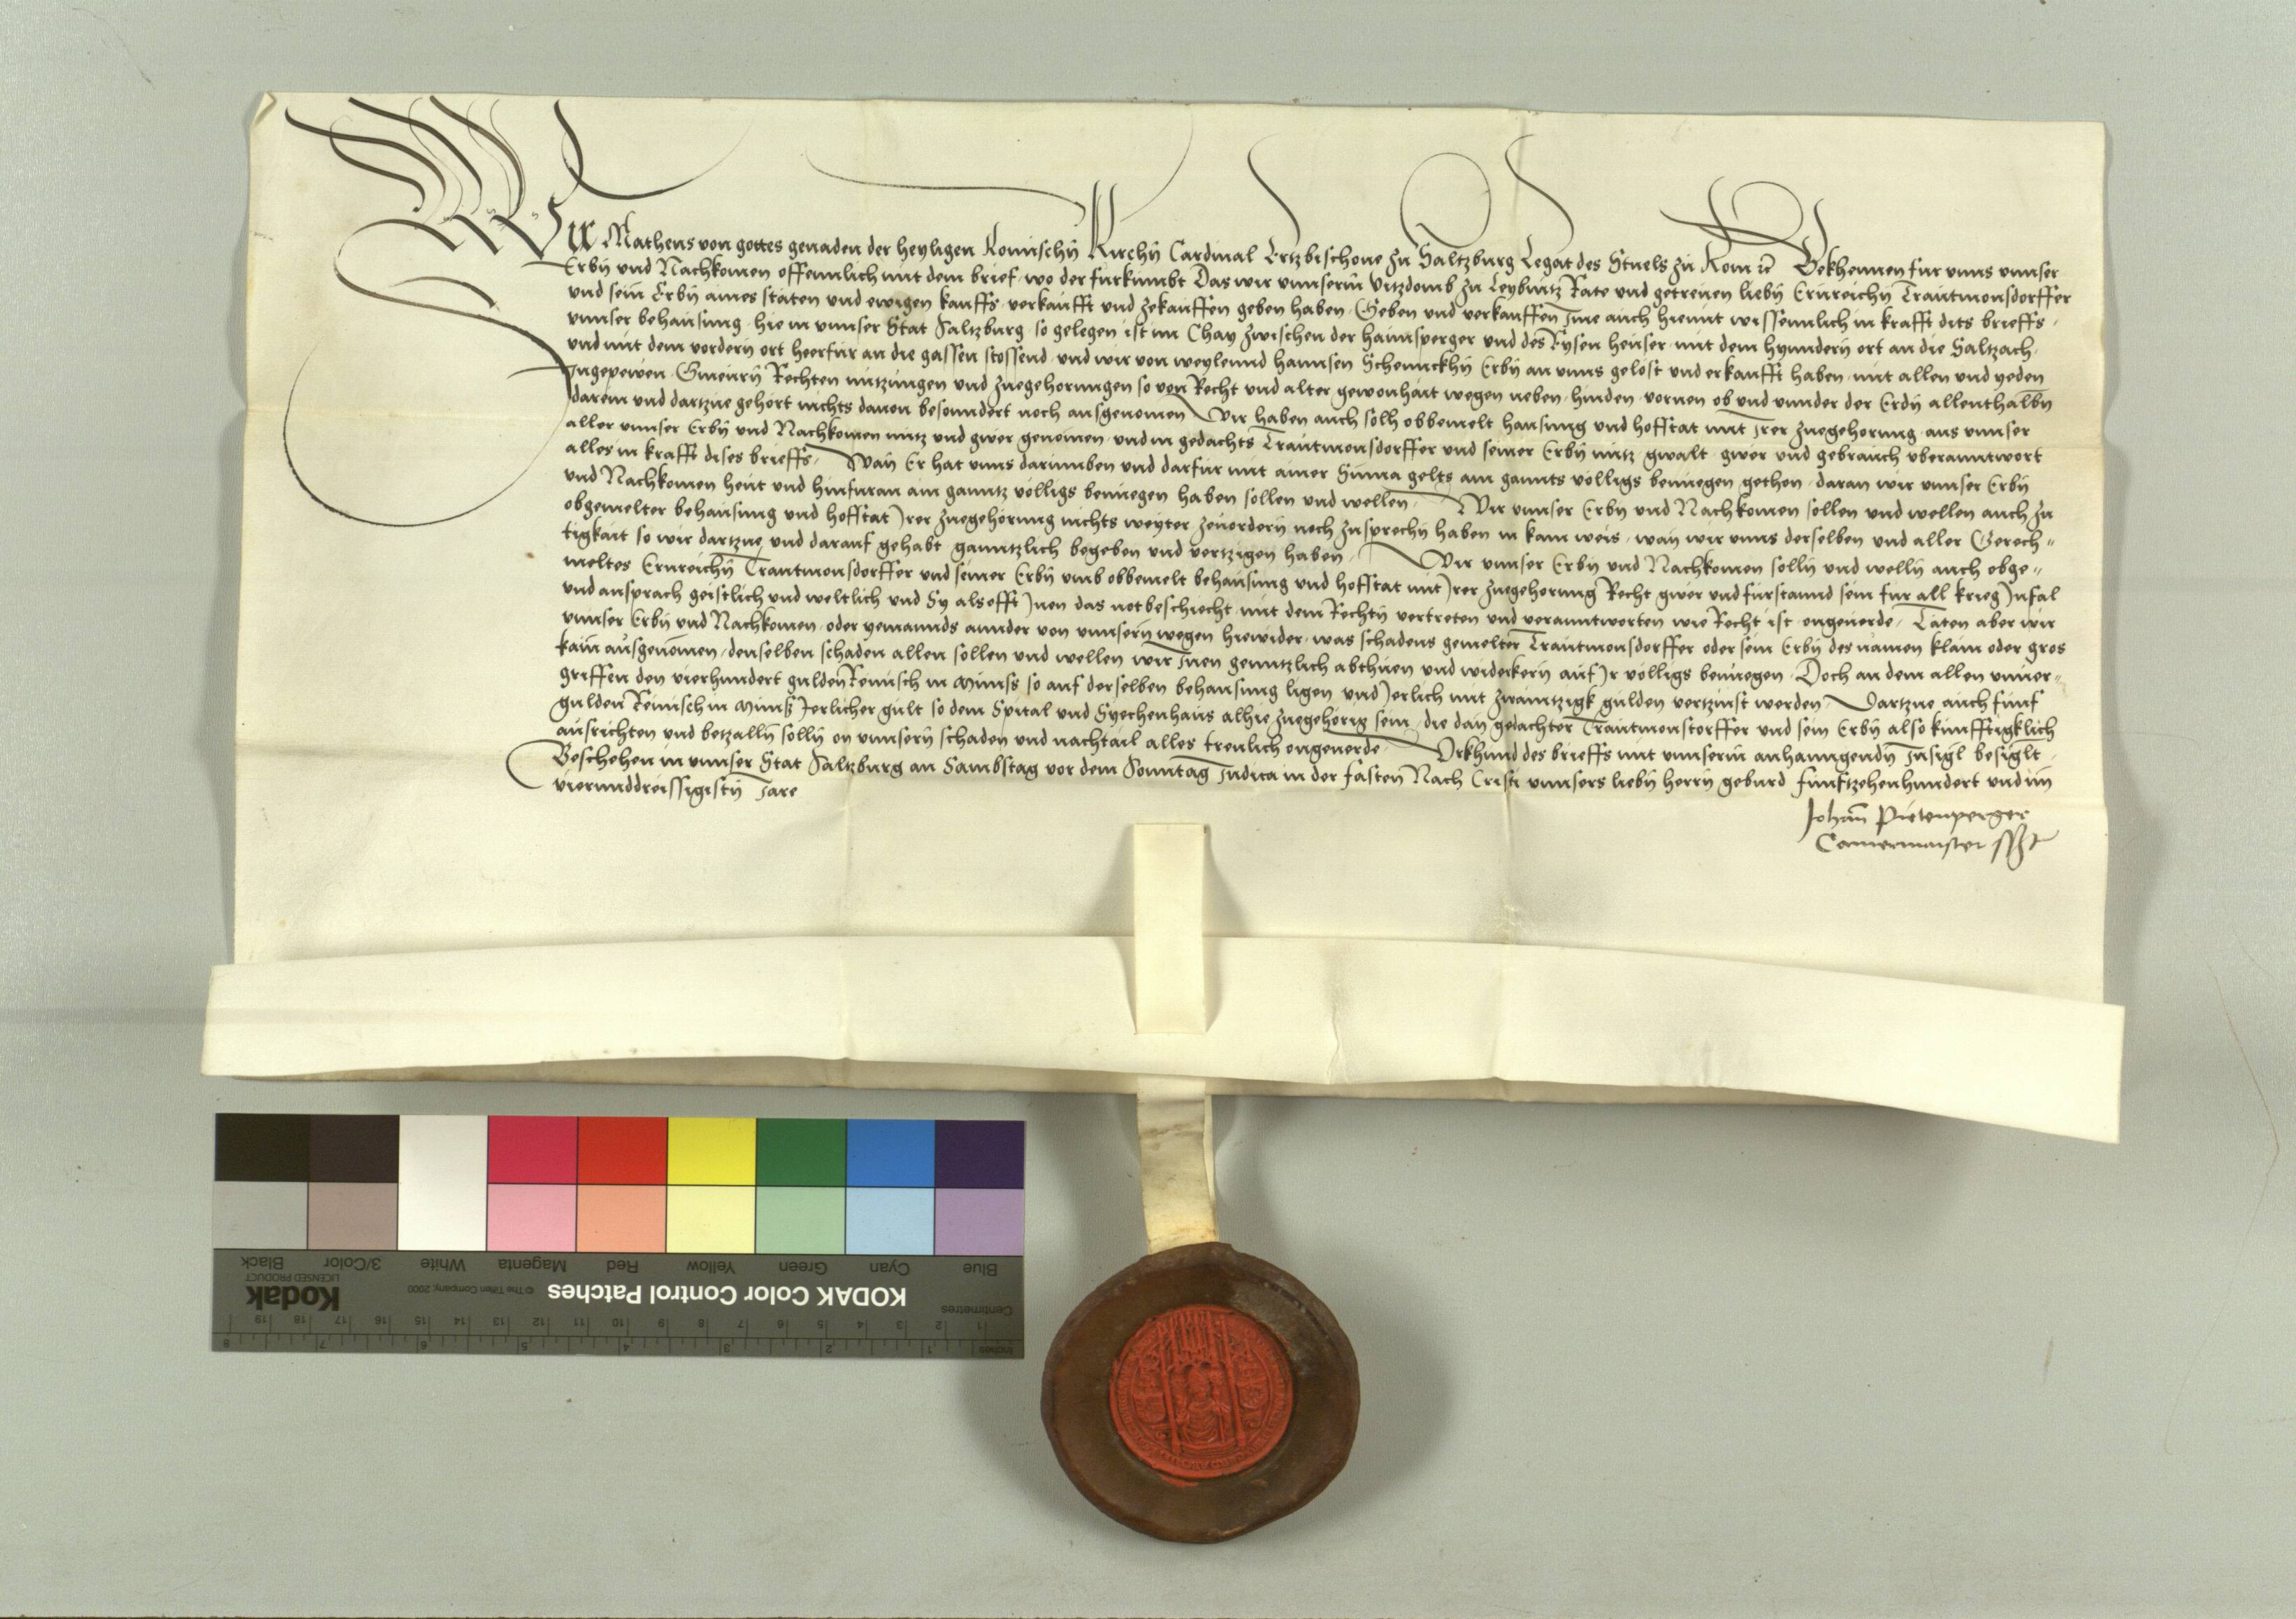 Wir Matheus von gottes genaden der heyligen Romischn̄ Kirchn̄ Cardinal Ertzbischoue zu Saltzburg Legat des Stuels zu Rom ꝛc Bekhennen fur vnns vnnser
Erbn̄ vnd Nachkomen offennlich mit dem brief wo der furkumbt Das wir vnnserm Vitzdomb zu Leybnitz Rate vnd getreuen liebn̄ Ernreichn̄ Trautmonsdorffer
vnd sein Erbn̄ aines stäten vnd ewigen kauffs verkaufft vnd zekauffen geben haben Geben vnd verkauffen Ime auch hiemit wissenntlich in krafft dits brieffs
vnnser behausung hie in vnnser Stat Saltzburg so gelegen ist im Chay zwischen der Haunsperger vnd des Rysen heuser mit dem hynndern̄ ort an die Saltzach
vnd mit dem vordern̄ ort heerfur an die gassen stossend vnd wir von weylennd Hannsen Schennckhn̄ Erbn̄ an vnns gelöst vnd erkaufft haben mit allen vnd yeden
Ingepewen Rechten nutzungen vnd zuegehorungen so von Recht vnd alter gewonhait wegen neben hinden vornen ob vnd vnnder der Erdn̄ allenthalbn̄
darein vnd dartzue gehort nichts dauon besonndert noch ausgenomen Wir haben auch solh obbemelt hausung vnd hofstat mit Irer zuegehorung aus vnnser
aller vnnser Erbn̄ vnd Nachkomen nutz vnd gwer genomen vnd in gedachts Trautmonsdorffer vnd seiner Erbn̄ nutz gwalt gwer vnd gebrauch vberanntwort
alles in krafft dises brieffs Wan̄ Er hat vnns darumben vnd darfur mit ainer Suma gelts ain gannts völligs benuegen gethon daran wir vnnser Erbn̄
vnd Nachkomen heut vnd hinfuran ain ganntz völligs benuegen haben sollen vnd wellen Wir vnnser Erbn̄ vnd Nachkomen sollen vnd wellen auch zu
obgemelter behausung vnd hofstat Irer zuegehörung nichts weyter zeuordern̄ noch zusprechn̄ haben in kain weis wan̄ wir vnns derselben vnd aller Gerech-
tigkait so wir dartzue vnd darauf gehabt ganntzlich begeben vnd vertzigen haben Wir vnnser Erbn̄ vnd Nachkomen solln̄ vnd welln̄ auch obge-
meltes Ernreichn̄ Trautmonsdorffer vnd seiner Erbn̄ vmb obbemelt behausung vnd hofstat mit Irer zuegehorung Recht gwer vnd furstannd sein fur all krieg Infal
vnd ansprach geistlich vnd weltlich vnd Sy als offt Inen das not beschiecht mit dem Rechtn̄ vertreten vnd veranntworten wie Recht ist ongeuerde Täten aber wir
vnnser Erbn̄ vnd Nachkomen oder yemannds annder von vnnsern̄ wegen hiewider was schadens gemelter Trautmonsdorffer oder sein Erbn̄ des namen klain oder gros
kain ausgenomen denselben schaden allen sollen vnd wellen wir Inen genntzlich abthuen vnd widerkern̄ auf Ir völligs benuegen Doch an dem allen vnuer-
griffen den vierhundert gulden Reinisch in Munss so auf derselben behausung ligen vnd Jerlich mit zwaintzigk gulden vertzinst werden Dartzue auch funf
gulden Reinisch in Munß Jerlicher gült so dem Spital vnd Syechenhaus alhie zuegehörig sein die dan̄ gedachter Trautmonstorffer vnd sein Erbn̄ also kunfftigklich
ausrichten vnd betzalln̄ solln̄ on vnnsern̄ schaden vnd nachtail alles treulich ongeuerde Vrkhund des brieffs mit vnnserm anhanngendn̄ Insigl besiglt
Beschehen in vnnser Stat Saltzburg an Sambstag vor dem Sonntag Judica in der fasten Nach Cristi vnnsers liebn̄ herrn̄ geburd funftzehenhundert vnd im
vierunddreissigistn̄ Jare
Johan̄ Pietenperger
Camermaister
Blue
Cyan
Green
Yellow
Red
Magenta
White
3/Color
Black
KODAK Color Control Patches
© The Tiffen Company, 2000
Kodak
LICENSED PRODUCT
Centimetres
1 2 3 4 5 6 7 8 9 10 11 12 13 14 15 16 17 18 19
Inches
1 2 3 4 5 6 7 8